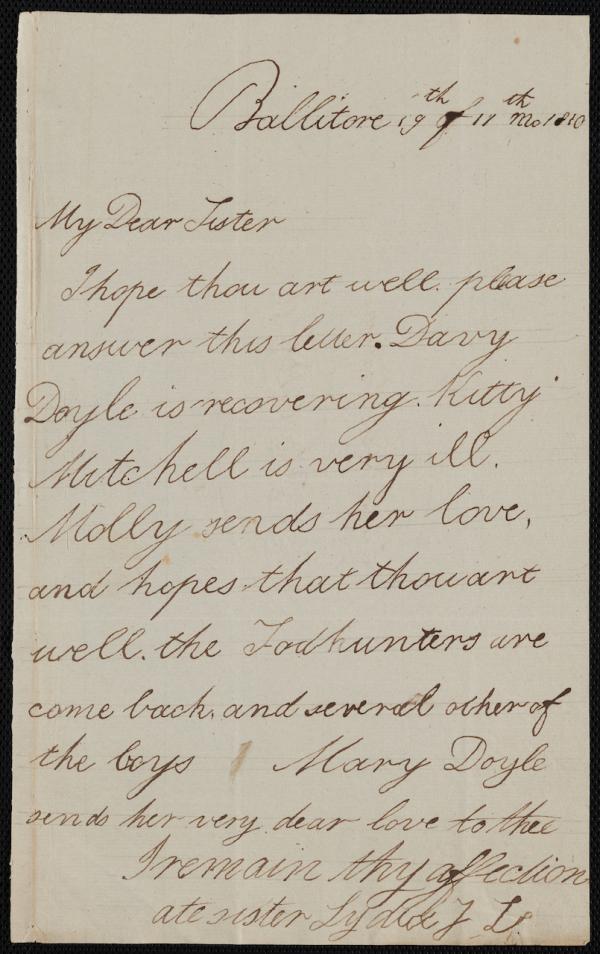 Ballitore 19th of 11th mo 1810
My Dear Sister
I hope thou art well. please
answer this letter. Davy
Doyle is recovering. Kitty
Mitchell is very ill.
Molly sends her love,
and hopes that thou art
well. the Todhunters are
come back. and several other of
the boys Mary Doyle
sends her very dear love to thee
I remain thy affection
ate sister Lydia J L